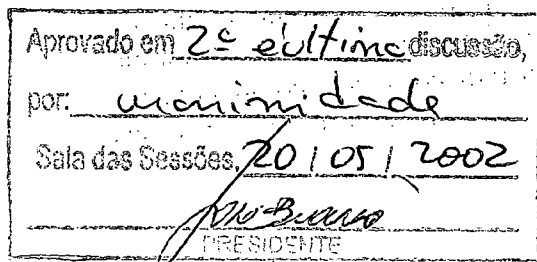 Aprovado em 2ª e última discussão,
por: unanimidade
Sala das Sessões, 20 / 05 / 2002
PRESIDENTE